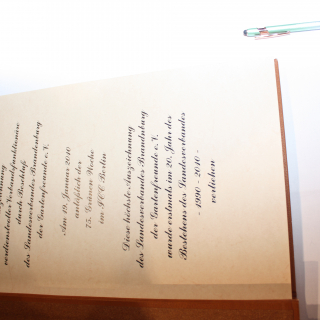 verdienstvolle Verbandsfunktionäre
durch Beschluß
des Landesverbandes Brandenburg
der Gartenfreunde e.V.
Am 19. Januar 2010
anläßlich der
75. Grünen Woche
im ICC Berlin
Diese höchste Auszeichnung
des Landesverbandes Brandenburg
der Gartenfreunde e.V.
wurde erstmals im 20. Jahr des
Bestehens des Landesverbandes
- 1990 - 2010 -
verliehen